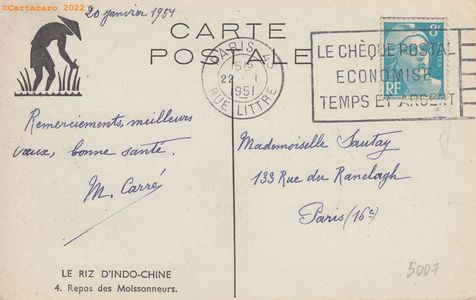 © Cartacaro 2022
20 janvier 1951
CARTE
POSTALE
PARIS
22 - 1
1951
RUE LITTRÉ
LE CHÈQUE POSTAL
ECONOMISE
TEMPS ET ARGENT
8F
RF
Remerciements, meilleurs
vœux, bonne santé.
M. Carré
Mademoiselle Sautay
133 Rue du Ranelagh
Paris (16e)
5007
LE RIZ D'INDO-CHINE
4. Repas des Moissonneurs.